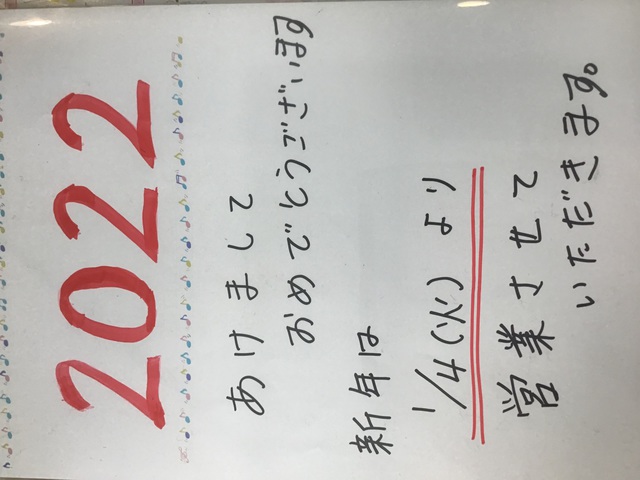 2022
あけまして
おめでとうございます
新年は
1/4(火)より
営業させて
いただきます。